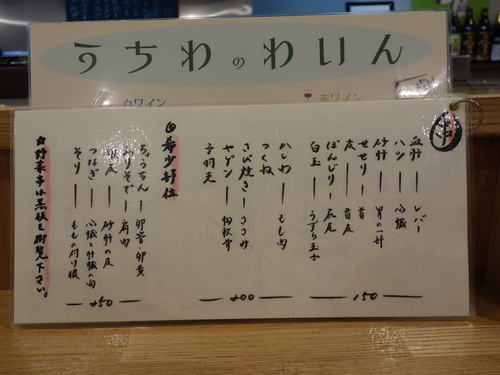 うちわのわいん
白ワイン
赤ワイン
串
血肝 ― レバー
ハツ ― 心臓
砂肝 ― 胃の一部
せせり ― 首肉
皮 ― 首皮
ぼんじり ― 尾尾
白玉 ― うずら玉子
― 150 ―
かしわ ― もも肉
つくね
さび焼き ― ささみ
ヤゲン ― 胸軟骨
手羽先
― 200 ―
◎希少部位
ちょうちん ― 卵管 卵黄
ふりそで ― 肩肉
銀皮 ― 砂肝の皮
つなぎ ― 心臓と肝臓の肉
そり ― ももの付け根
― 250 ―
☆野菜串は黒板を御覧下さい。